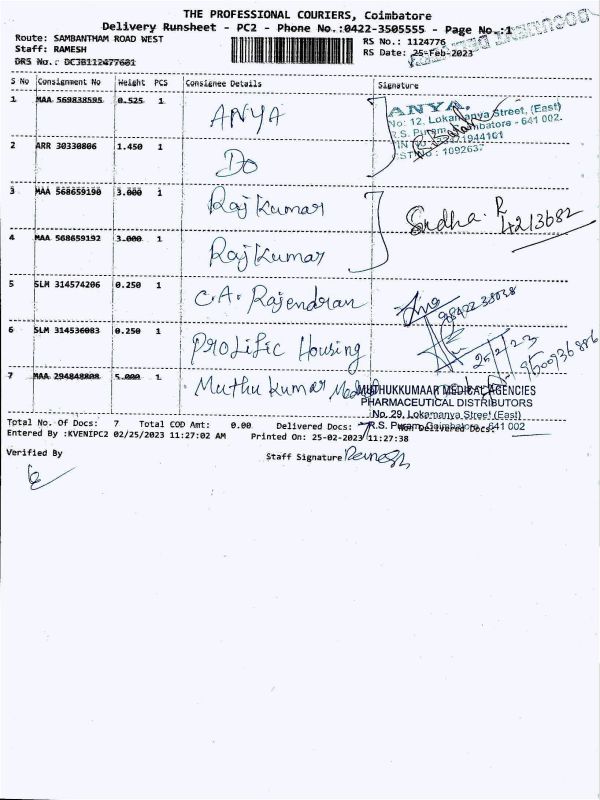 THE PROFESSIONAL COURIERS, Coimbatore
Delivery Runsheet - PC2 - Phone No.:0422-3505555 - Page No.:1
Route: SAMBANTHAM ROAD WEST
RS No.: 1124776
Staff: RAMESH
RS Date: 25-Feb-2023
DRS No.: DCJB112477601
S No Consignment No Weight PCS Consignee Details Signature
1 MAA 569838595 0.525 1 ANYA
ANYA.
No: 12, Lokamanya Street, (East)
R.S. Puram, Coimbatore - 641 002.
2 ARR 30330806 1.450 1 Do
3 MAA 568659190 3.000 1 Raj Kumar
Sudha. R
4213682
4 MAA 568659192 3.000 1 Raj Kumar
5 SLM 314574206 0.250 1 C.A. Rajendran
6 SLM 314536083 0.250 1 Prolific Housing
25/2/23
7 MAA 294848808 5.000 1 Muthu Kumar Medical
MUTHUKKUMAAR MEDICAL AGENCIES
PHARMACEUTICAL DISTRIBUTORS
No. 29, Lokamanya Street (East)
R.S. Puram, Coimbatore - 641 002
Total No. Of Docs: 7 Total COD Amt: 0.00 Delivered Docs: 7 Non Delivered Docs:
Entered By :KVENIPC2 02/25/2023 11:27:02 AM Printed On: 25-02-2023 11:27:38
Verified By
Staff Signature Ramesh